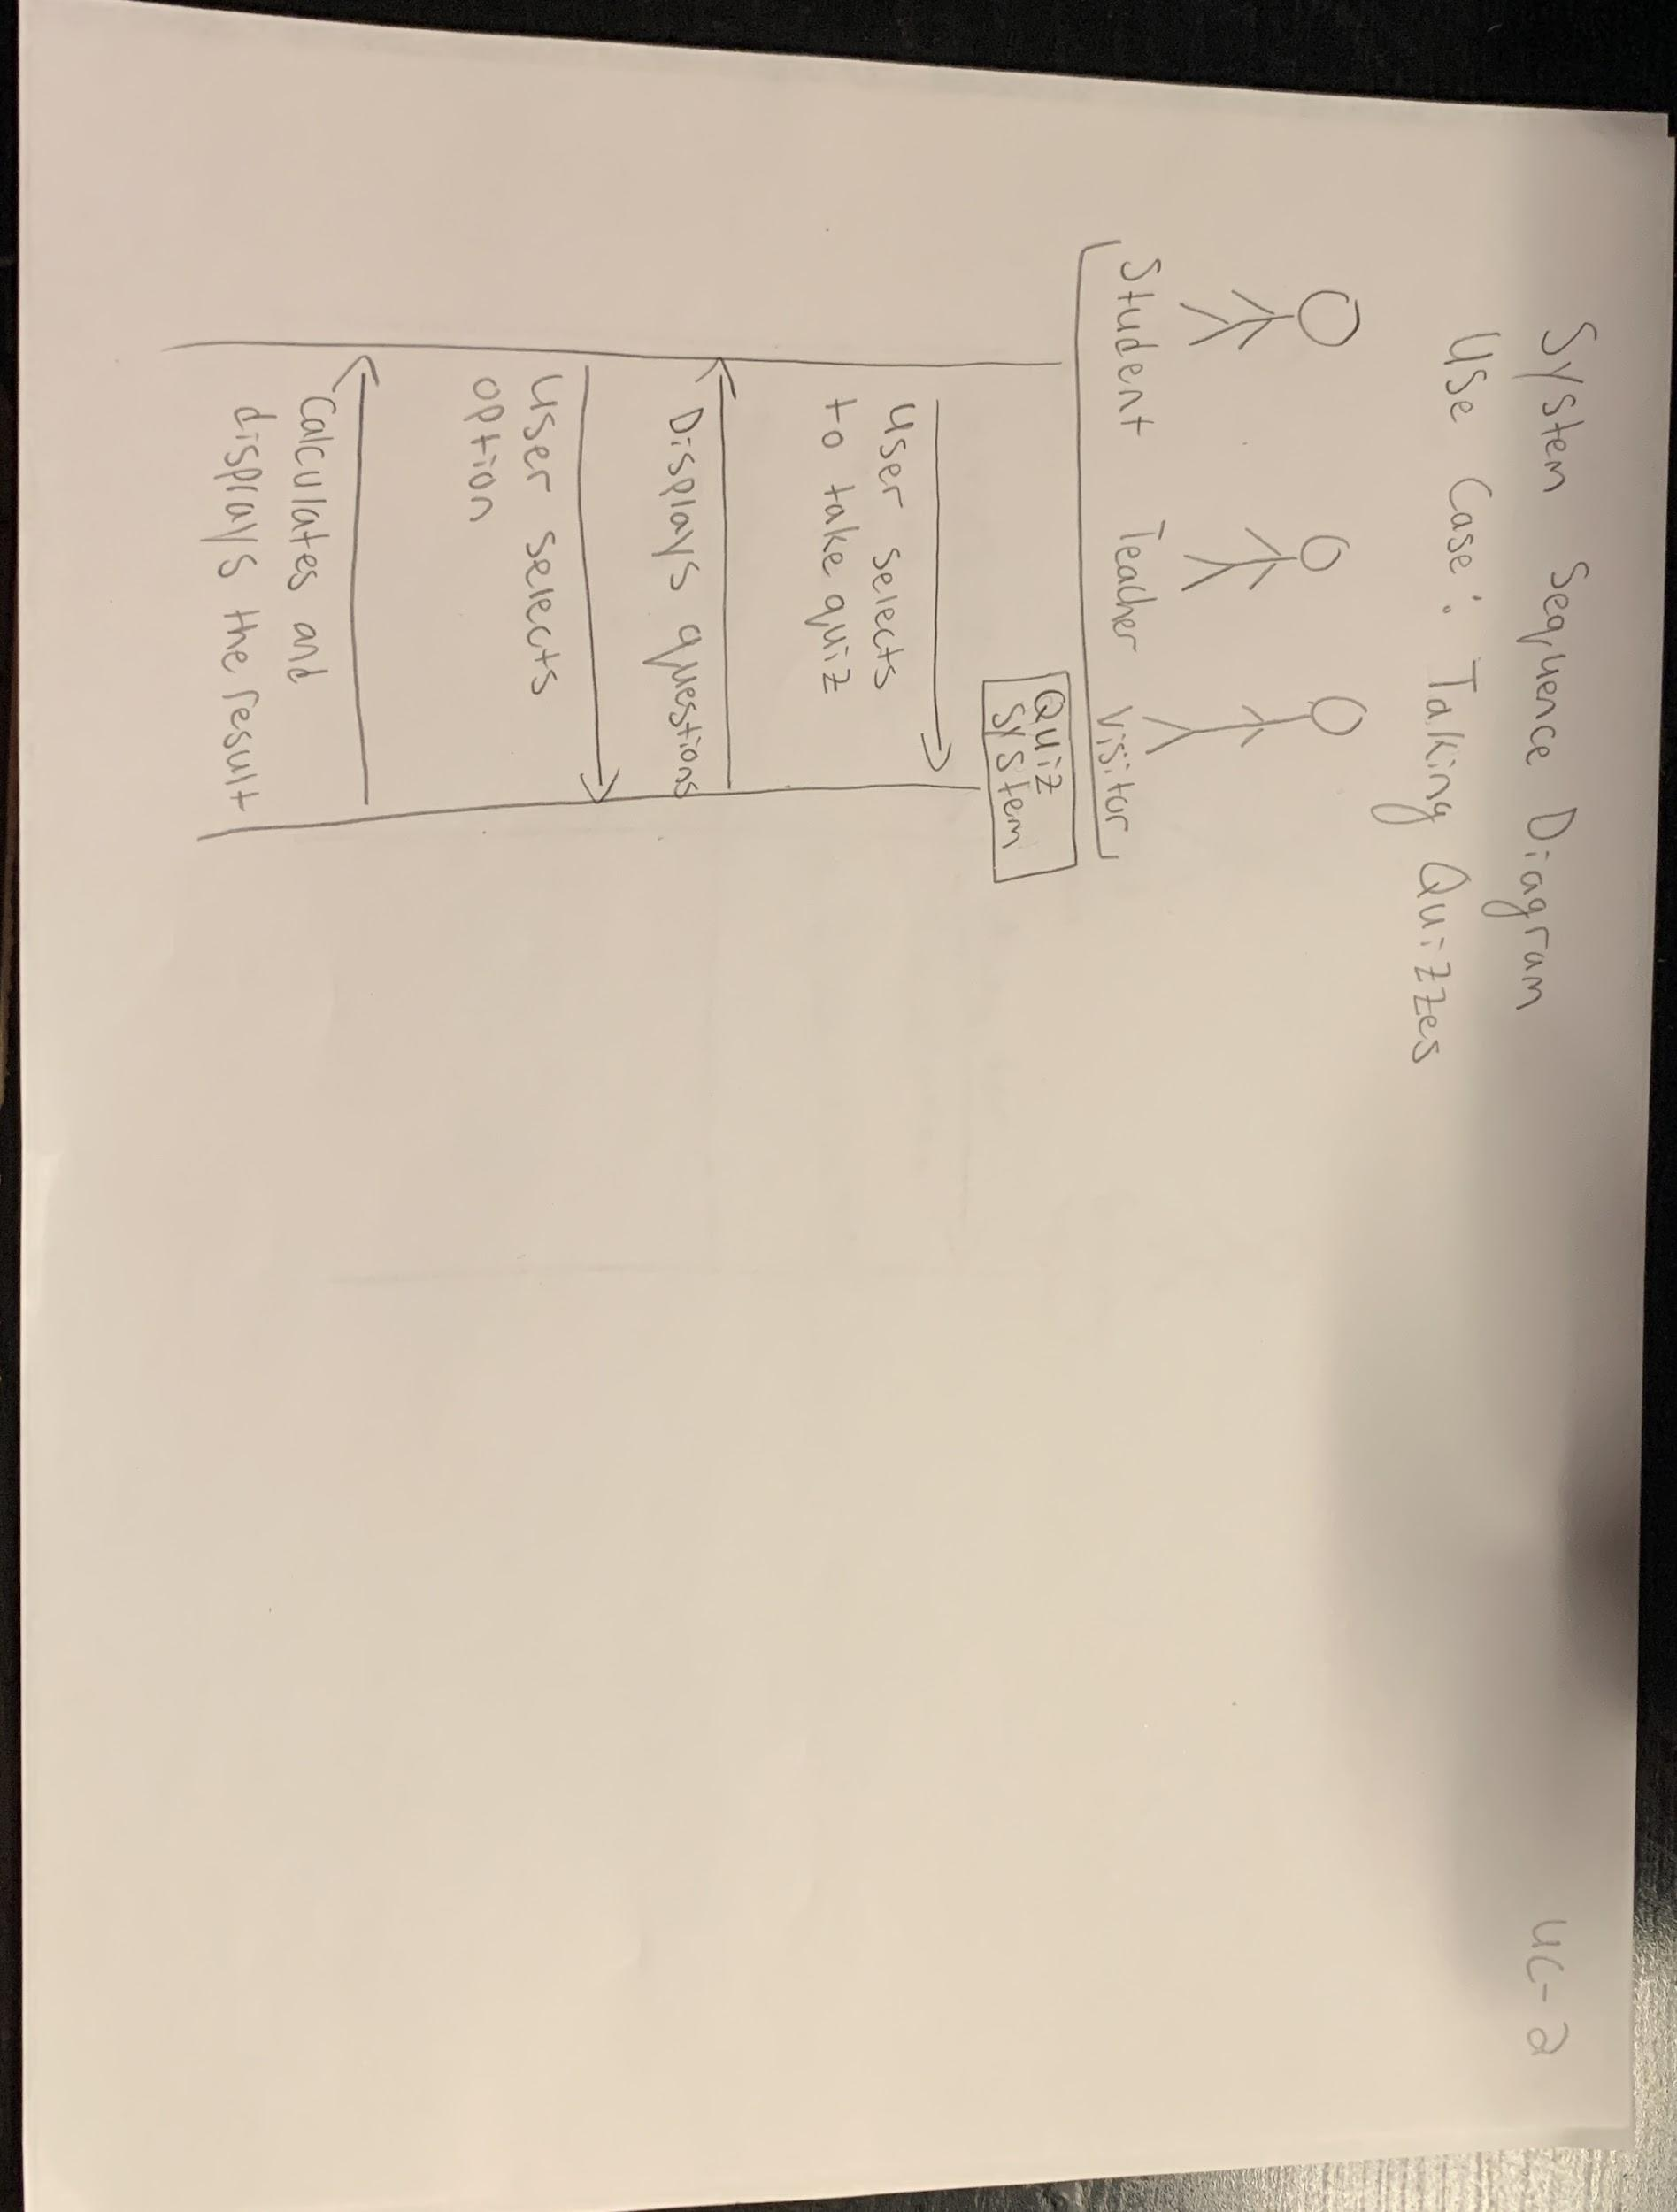 System Sequence Diagram
UC-2
Use Case: Taking Quizzes
Student Teacher Visitor
Quiz
System
User selects
to take quiz
Displays questions
User selects
option
Calculates and
displays the result